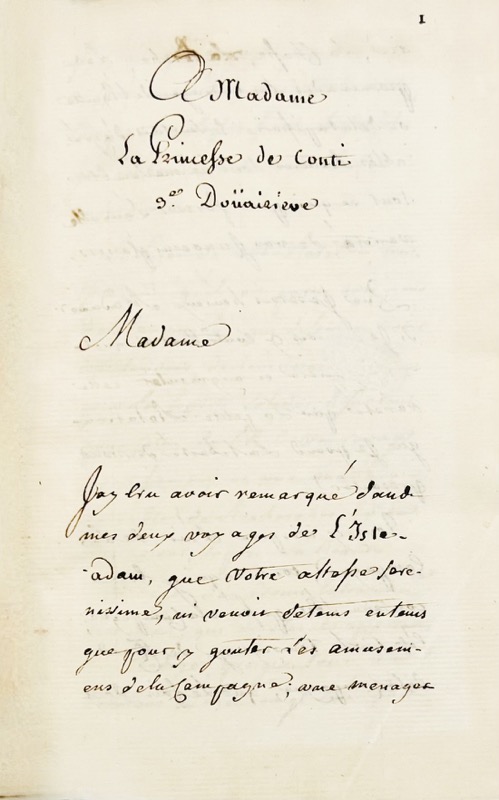 1
A Madame
La Princesse de Conti
3.e Doüairiere
Madame
J'ay bru avoir remarqué dans
mes deux voyages de L'Isle-
adam, que Votre altesse sere-
nissime, ni venoit detems entems
que pour y gouter Les amusem-
ens dela Campagne; une menager